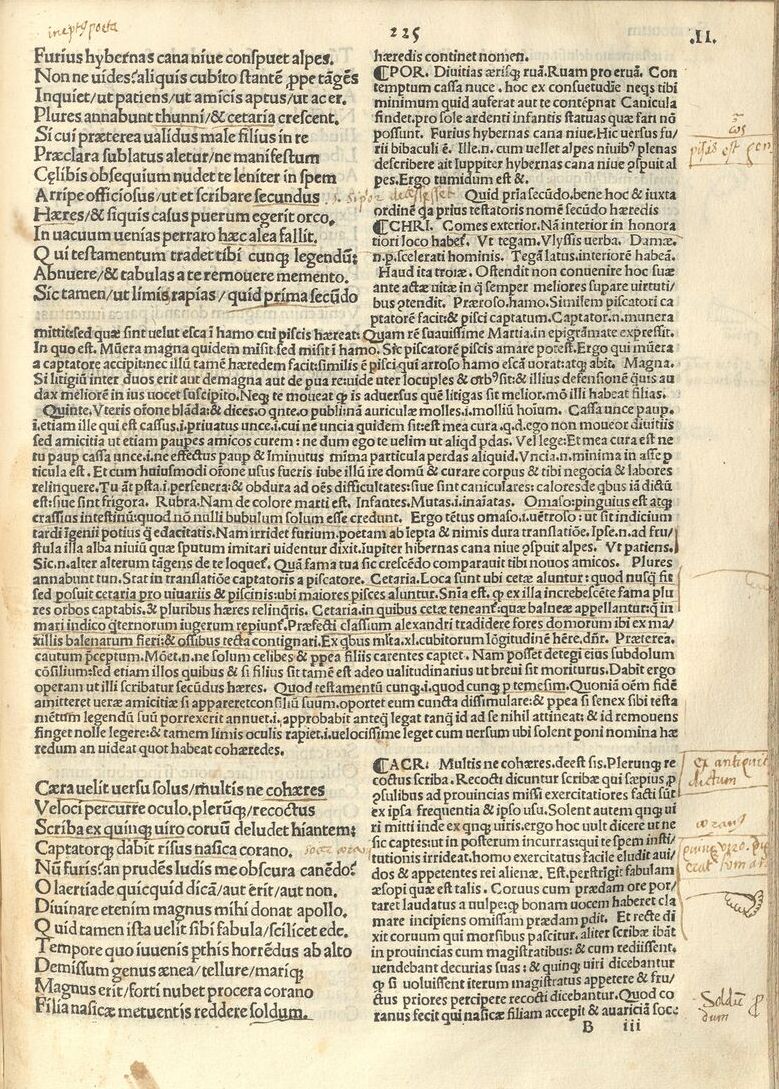 ineptꝰ poeta
225
.II.
Furius hybernas cana niue conspuet alpes.
Non ne uides: aliquis cubito stantē ꝓpe tāgēs
Inquiet/ut patiens/ut amicis aptus/ut acer.
Plures annabunt thunni/& cetaria crescent.
Si cui præterea ualidus male filius in re
Præclara sublatus aletur/ne manifestum
Cęlibis obsequium nudet te leniter in spem
Arripe officiosus/ut et scribare secundus
Hæres/& siquis casus puerum egerit orco.
In uacuum uenias perraro hæc alea fallit.
Qui testamentum tradet tibi cunqꝫ legendū:
Abnuere/& tabulas a te remouere memento.
Sic tamen/ut limis rapias/quid prima secūdo
hæredis continet nomen.
¶POR. Diuitias ærisqꝫ ruā. Ruam pro eruā. Con
temptum cassa nuce. hoc ex consuetudīe neqꝫ tibi
minimum quid auferat aut te contēpnat Canicula
findet. pro sole ardenti infantis statuas quæ fari nō
possunt. Furius hybernas cana niue. Hic uersus fu/
rii bibaculi ē. Ille.n. cum uellet alpes niuibꝰ plenas
describere ait Iuppiter hybernas cana niue ꝯspuit al
pes. Ergo tumidum est &.
Quid pria secūdo. bene hoc & iuxta
ordinē qa prius testatoris nomē secūdo hæredis
¶CHRI. Comes exterior. Nā interior in honora
tiori loco habet. Vt tegam. Vlyssis uerba. Damæ.
n.p. scelerati hominis. Tegā latus. interiorē habeā.
Haud ita troiæ. Ostendit non conuenire hoc suæ
ante actæ uitæ in q̄ semper meliores supare uirtuti/
bus ꝯtendit. Præroso. hamo. Similem piscatori ca
ptatorē facit: & pisci captatum. Captator.n. munera
mittit: sed quæ sint uelut esca ī hamo cui piscis hæreat: Quam rē suauissime Martia. in epigrāmate expressit.
In quo est. Mūera magna quidem misit. sed misit ī hamo. Sic piscatorē piscis amare potest. Ergo qui mūera
a captatore accipit: nec illū tamē hæredem facit: similis ē pisci. qui arroso hamo escā uorat: atqꝫ abit. Magna.
Si litigiū inter duos erit aut de magna aut de pua re: uide uter locuples & orbꝰ sit: & illius defensionē q̄uis au
dax meliorē in ius uocet suscipito. Neqꝫ te moueat ꝙ is aduersus quē litigas sit melior. mō illi habeat filias.
Quinte. Vteris orōne blāda: & dices. o qnte. o publi: nā auriculæ molles. i. molliū hoīum. Cassa unce paup.
i. etiam ille qui est cassus. i. priuatus unce. i. cui ne uncia quidem sit: est mea cura. q.d. ego non moueor diuitiis
sed amicitia ut etiam paupes amicos curem: ne dum ego te uelim ut aliqd pdas. Vel lege: Et mea cura est ne
tu paup cassa unce. i. ne effectus paup & īminutus mīma particula perdas aliquid. Vncia. n. minima in asse p
ticula est. Et cum huiusmodi orōne usus fueris iube illū ire domū & curare corpus & tibi negocia & labores
relinquere. Tu āt pstā. i. perseuera: & obdura ad oēs difficultates: siue sint caniculares: calores de qbus iā dictū
est: siue sint frigora. Rubra. Nam de colore marti est. Infantes. Mutas. i. inaīatas. Omaso: pinguius est atqꝫ
crassius intestinū: quod nō nulli bubulum solum esse credunt. Ergo tētus omaso. i. uētroso: ut sit indicium
tardi īgenii potius q̄ edacitatis. Nam irridet furium. poetam ab īepta & nimis dura translatiōe. Ipse. n. ad fru/
stula illa alba niuiū quæ sputum imitari uidentur dixit. iupiter hibernas cana niue ꝯspuit alpes. Vt patiens.
Sic. n. alter alterum tāgens de te loquet. Quā fama tua sic crescēdo comparauit tibi nouos amicos. Plures
annabunt tun. Stat in translatiōe captatoris a piscatore. Cetaria. Loca sunt ubi cetæ aluntur: quod nusq̄ sit
sed posuit cetaria pro uiuariis & piscinis: ubi maiores pisces aluntur. Snīa est. ꝙ ex illa increbescēte fama plu
res orbos captabis. & pluribus hæres relinqris. Cetaria. in quibus cetæ teneant: quæ balneæ appellantur: q̄ in
mari indico q̄ternorum iugerum repiunt. Præfecti classium alexandri tradidere fores domorum ibi ex ma/
xillis balenatum fieri: & ossibus tecta contignari. Ex qbus mīta. xl. cubitorum lōgitudinē hēre. dñr. Præterea.
cautum p̄ceptum. Mōet. n. ne solum celibes & ppea filiis carentes captet. Nam posset detegi eius subdolum
cōsilium: sed etiam illos quibus & si filius sit tamē est adeo ualitudinarius ut breui sit moriturus. Dabit ergo
operam ut illi scribatur secūdus hæres. Quod testamentū cunqꝫ. i. quod cunqꝫ p temesim. Quoniā oēm fidē
amitteret ueræ amicitiæ si appareret consiliū suum. oportet eum cuncta dissimulare: & ppea si senex sibi testa
mētum legendū suū porrexerit annuet. i. approbabit anteq̄ legat tanq̄ id ad se nihil attineat: & id remouens
finget nolle legere: & tamem limis oculis rapiet. i. uelocissime leget cum uersum ubi solent poni nomina hæ
redum an uideat quot habeat cohæredes.
Cæra uelit uersu solus/multis ne cohæres
Veloci percurre oculo. plerūqꝫ/recoctus
Scriba ex quinqꝫ uiro coruū deludet hiantem:
Captatorqꝫ dabit risus nasica corano.
Nū furis: an prudēs ludis me obscura canēdo:
O laertiade quicquid dicā/aut erit/aut non.
Diuinare etenim magnus mihi donat apollo.
Quid tamen ista uelit sibi fabula/scilicet ede.
Tempore quo iuuenis pthis horrēdus ab alto
Demissum genus ænea/tellure/mariqꝫ
Magnus erit/forti nubet procera corano
Filia nasicæ metuentis reddere soldum.
¶ACR: Multis ne cohæres. deest sis. Plerunqꝫ re
coctus scriba. Recocti dicuntur scribæ qui sæpius ꝓ
ꝯsulibus ad prouincias missi exercitatiores facti sūt
ex ipsa frequentia & ipso usu. Solent autem qnqꝫ ui
ri mitti inde ex qnqꝫ uiris. ergo hoc uult dicere ut ne
sic captes: ut in posterum incurras: qui te spem insti/
tutionis irrideat. homo exercitatus facile eludit aui/
dos & appetentes rei alienæ. Est. perstrīgi: fabulam
æsopi quæ est talis. Coruus cum prædam ore por/
taret laudatus a uulpe: ꝙ bonam uocem haberet cla
mare incipiens omissam prædam pdit. Et recte di
xit coruum qui morsibus pascitur. aliter scribæ ibāt
in prouincias cum magistratibus: & cum rediissent.
uendebant decurias suas: & quinqꝫ uiri dicebantur
ꝙ si uoluissent iterum magistratus appetere & fru/
ctus priores percipere recocti dicebantur. Quod co
ranus fecit qui nasicæ filiam accepit & auariciā soce
ex antiquit
dictum
Soldū
dum
B iii